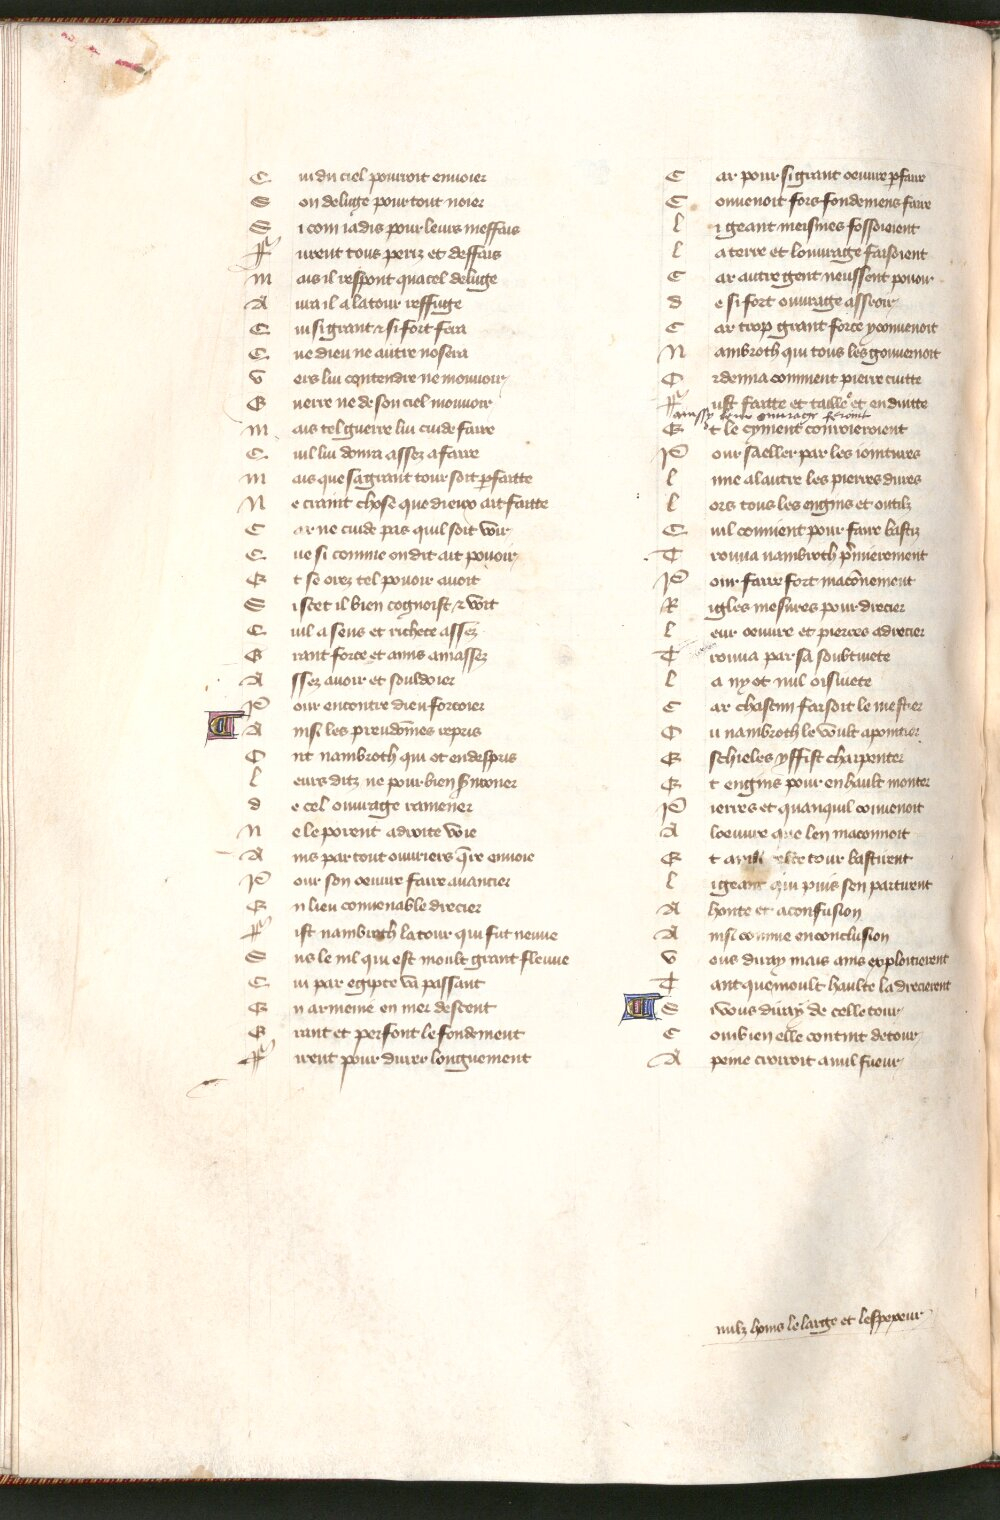 C ui du ciel pourroit enuoier
S on deluge pour tout noier
S i com iadis pour leurs meffais
Ff urent tous periz et deffais
M ais il respont qua cel deluge
A ura il a la tour reffuge
C ui si grant & si fort fera
C ue dieu ne autre nosera
V ers lui contendre ne mouuoir
G uerre ne de son ciel mouuoir
M ais tel guerre lui cuide faire
C uil lui donra assez a faire
M ais que sa grant tour soit pfaitte
N e craint chose que dieux ait faitte
C ar ne cuide pas quil soit voir
C ue si comme on dit ait pouoir
E t se orez tel pouoir auoit
S i scet il bien cognoist & voit
C uil a sens et richece assez
G rant force et amis amassez
A ssez auoir et souldoier
P our encontre dieu forcoier
A insi les preudomes repris
O nt nambroth qui ot en despris
L eurs ditz ne pour bien sermoner
D e cel ouurage ramener
N e le porent a droite voie
A ins par tout ouuriers qre enuoie
P our son oeuure faire auancier
E n lieu conuenable drecier
F ist nambroth la tour qui fut neuue
S us le nil qui est moult grant fleuue
C ui par egipte va passant
E n armenie en mer descent
G rant et perfont le fondement
Ff irent pour durer longuement
C ar pour si grant oeuure pfaire
C onuenoit fors fondemens faire
L i geant meismes fossoieient
L a terre et louurage faisoient
C ar autre gent neussent pouoir
D e si fort ouurage asseoir
C ar trop grant force y conuenoit
N ambroth qui tous les gouuernoit
O rdenna comment pierre cuitte
Ff ust faitte et taillee et enduitte
aussy leur ouurage feroient
E t le cyment conroieroient
P our saeller par les iointures
L une a lautre les pierres dures
L ors tous les engins et outilz
C uil conuient pour faire bastiz
T rouua nambroth pmierement
P our faire fort maconnement
R igles mesures pour drecier
L eur oeuure et pierres adrecier
T rouua par sa soubtiuete
L a ny ot nul oisiuete
C ar chascun faisoit le mestier
O u nambroth le voult apointier
E schieles y ffist charpenter
E t engins pour en hault monter
P ierres et quanquil conuenoit
A loeuure que len maconnoit
E t celle tour bastirent
L i geant qui puis sen partirent
A honte et a confusion
A insi comme en conclusion
V ous diray mais ains exploitierent
T ant que moult haulte la drecierent
S i vous diray de celle tour
C ombien elle contint de tour
A peine croirroit a nul fueur
nulz homs le large et lespoxeur